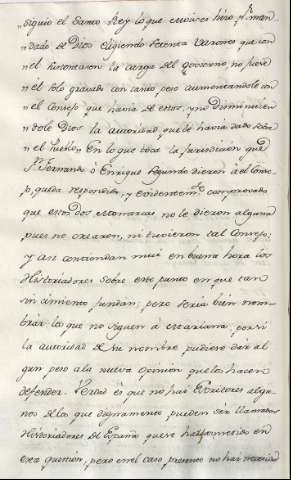 „ siguio el Santo Rey lo que Moises hizo, p.r man
„ dado de Dios eligiendo setenta varones que con
„ el sustentasen la carga del govierno, no fuese
„ el solo gravado con tanto peso aumentandole con
„ el Consejo que havia de estos, y no disminuien
„ dole Dios la autoridad que le havia dado sobre
„ el Pueblo. En lo que toca la Jurisdicion que
Sn Fernando ó Enrique segundo dieron á el Conse
jo, queda respondido, y evidentem.te comprovado
que estos dos Monarcas no le dieron alguna
pues no crearon, ni tuvieron tal Consejo;
y asi contiendan mui en buena hora los
Historiadores sobre este punto en que tan
sin cimiento fundan, pero seria bien nom
brar los que no siguen á Mariana, por si
la autoridad de su nombre pudiese dar al
gun peso a la nueva opinion que los hacen
defender. Verdad es que no hai Escritores algu
nos de los que dignamente pueden ser llamados
Historiadores de España que se haian metido en
esta question, pero en el caso presente no hai necesidad